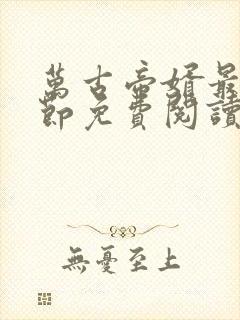 萬古帝婿最
節免費閱讀
無憂至上